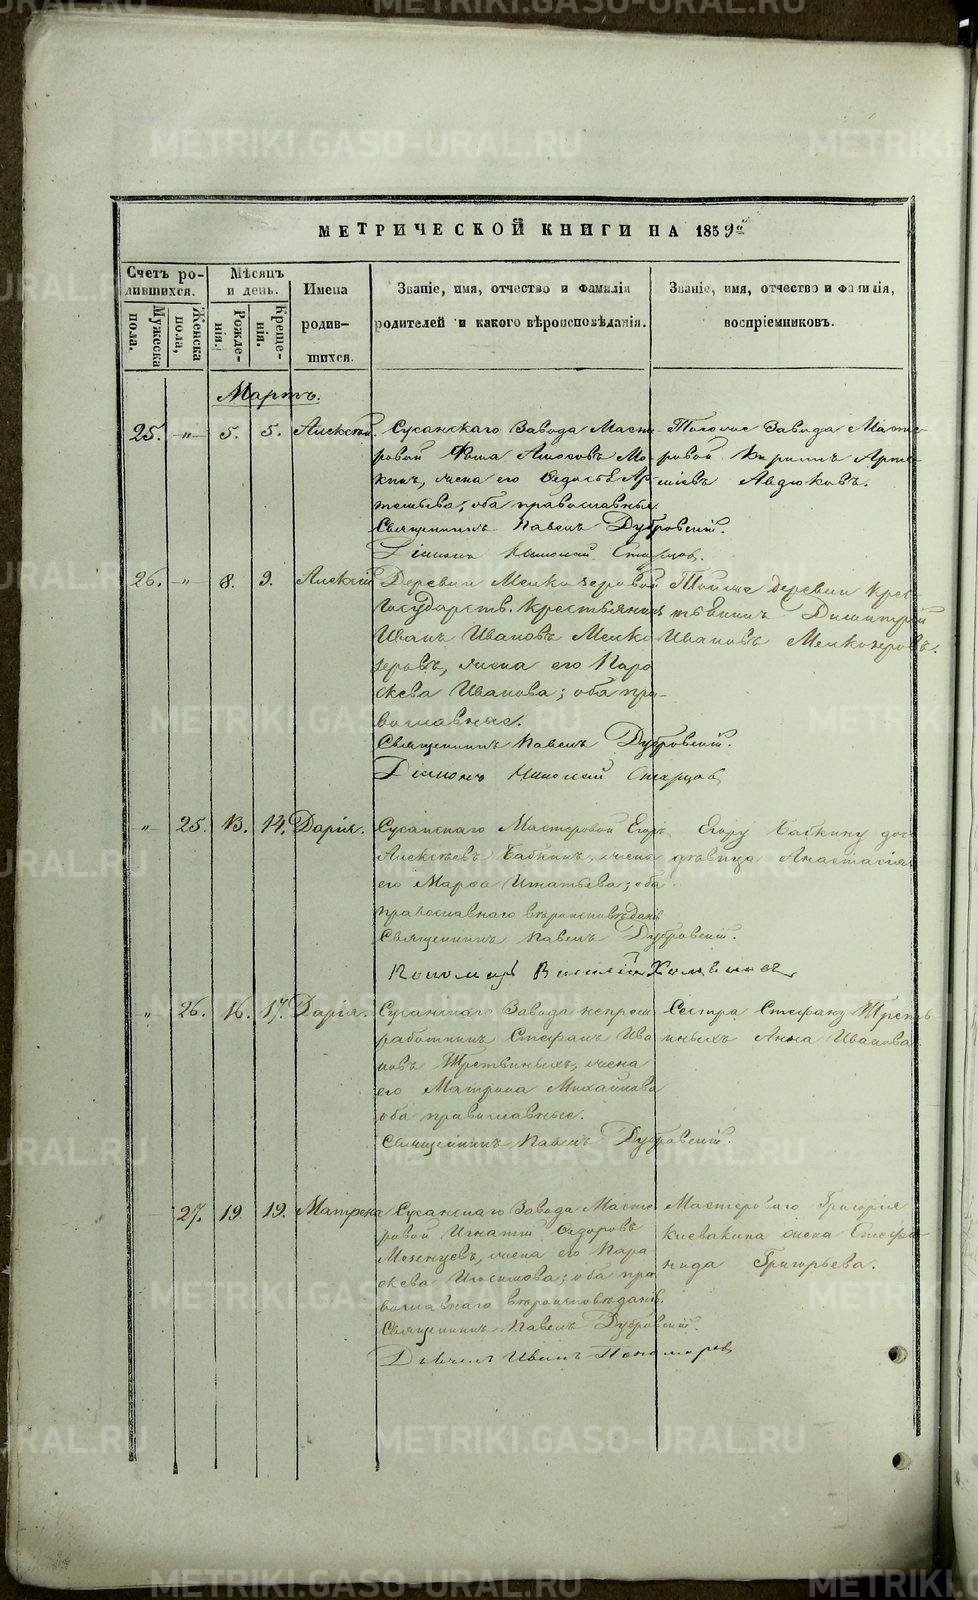 METRIKI.GASO-URAL.RU
МЕТРИЧЕСКОЙ КНИГИ НА 1859й
Счетъ ро-
дившихся.
Мужеска
пола.
Женска
пола,
Мѣсяцъ
и день.
Рожде-
нія.
Креще-
нія.
Имена
родив-
шихся.
Званіе, имя, отчество и фамилія
родителей и какого вѣроисповѣданія.
Званіе, имя, отчество и фамилія,
воспріемниковъ.
Мартъ.
25. " 5. 5. Алексѣй.
Сусанскаго Завода Масте-
ровой Амосовъ Мо-
кинъ, жена его Ар-
темьева, оба православные
Священникъ Павелъ Дубровскій.
Діаконъ Николай Старцов.
Тогоже Завода Масте-
ровой Кирилъ Арте-
міевъ Авдюковъ.
26. " 8. 9. Алексій
Деревни Мелкозеровой
Государств. Крестьянинъ
Иванъ Ивановъ Мелко
зеровъ, жена его Пара
скева Иванова; оба пра-
вославные.
Священникъ Павелъ Дубровскій.
Діаконъ Николай Старцов
Тойже деревни крес-
тьянинъ Димитрій
Ивановъ Мелкозеровъ.
" 25. 13. 14. Дарія.
Сусанскаго Мастеровой Егоръ
Алексѣевъ Бабкинъ, жена
его Марѳа Игнатьева; оба
православнаго вѣроисповѣданія
Священникъ Павелъ Дубровскій.
Пономарь Василій
Егору Бабкину доч
дѣвица Анастасія
" 26. 16. 17. Дарія.
Сусанскаго Завода непрем
работникъ Стефанъ Ива
новъ Третьиныхъ, жена
его Матрона Михайлова
оба православные.
Священникъ Павелъ Дубровскій.
Сестра Стефану Треть-
иныхъ Анна Иванова
27. 19 19. Матрена
Сусанскаго Завода Масте
ровой Игнатій Ѳедоровъ
Мезенцевъ, жена его Пара
скева; оба пра
вославнаго вѣроисповѣданія.
Священникъ Павелъ Дубровскій.
Дьячекъ Иванъ Пономарев
Мастероваго Григорія
Кисвакина жена Стефа-
нида Григорьева.